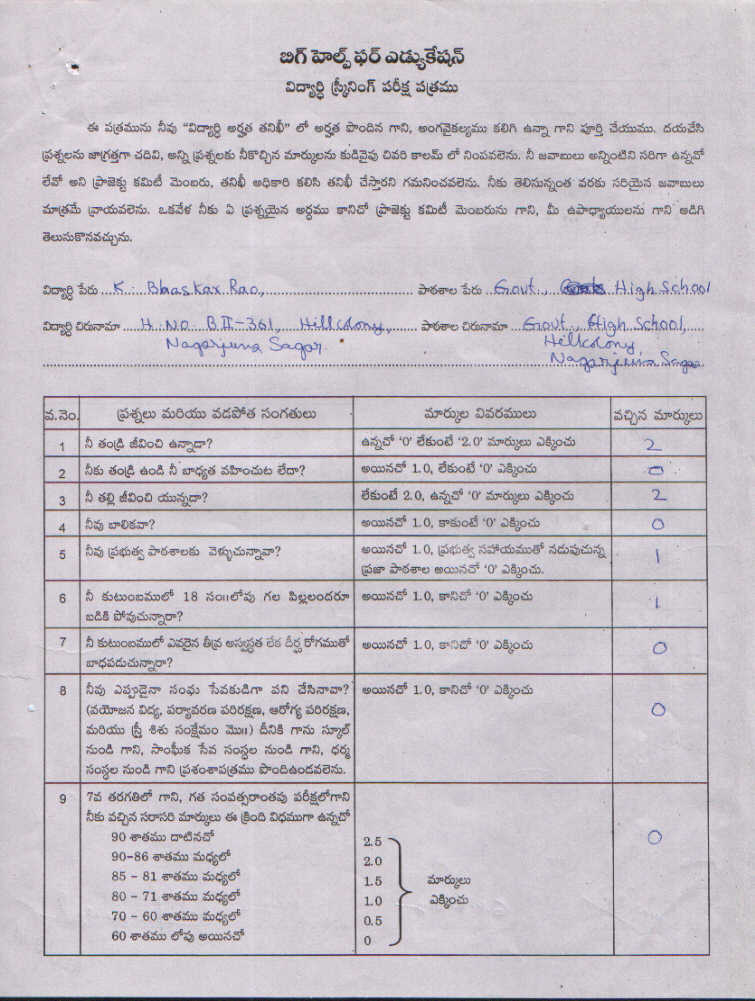 బిగ్ హెల్ప్ ఫర్ ఎడ్యుకేషన్
విద్యార్థి స్క్రీనింగ్ పరీక్ష పత్రము
ఈ పత్రమును నీవు "విద్యార్థి అర్హత తనిఖీ" లో అర్హత పొందిన గాని, అంగవైకల్యము కలిగి ఉన్నా గాని పూర్తి చేయుము. దయచేసి
ప్రశ్నలను జాగ్రత్తగా చదివి, అన్ని ప్రశ్నలకు నీకొచ్చిన మార్కులను కుడివైపు చివరి కాలమ్ లో నింపవలెను. నీ జవాబులు అన్నింటిని సరిగా ఉన్నవో
లేవో అని ప్రాజెక్టు కమిటీ మెంబరు, తనిఖీ అధికారి కలిసి తనిఖీ చేస్తారని గమనించవలెను. నీకు తెలిసున్నంత వరకు సరియైన జవాబులు
మాత్రమే వ్రాయవలెను. ఒకవేళ నీకు ఏ ప్రశ్నయైన అర్థము కానిచో ప్రాజెక్టు కమిటీ మెంబరును గాని, మీ ఉపాధ్యాయులను గాని అడిగి
తెలుసుకొనవచ్చును.
విద్యార్థి పేరు K. Bhaskar Rao, పాఠశాల పేరు Govt., High School
విద్యార్థి చిరునామా H. No. B II-361, Hillcolony, పాఠశాల చిరునామా Govt., High School,
Nagarjuna Sagar. Hillcolony
Nagarjuna Sagar.
వ.నెం. ప్రశ్నలు మరియు వడపోత సంగతులు మార్కుల వివరములు వచ్చిన మార్కులు
1 నీ తండ్రి జీవించి ఉన్నాడా? ఉన్నచో '0' లేకుంటే '2.0' మార్కులు ఎక్కించు 2
2 నీకు తండ్రి ఉండి నీ బాధ్యత వహించుట లేదా? అయినచో 1.0, లేకుంటే '0' ఎక్కించు 0
3 నీ తల్లి జీవించి యున్నదా? లేకుంటే 2.0, ఉన్నచో '0' మార్కులు ఎక్కించు 2
4 నీవు బాలికవా? అయినచో 1.0, కాకుంటే '0' ఎక్కించు 0
5 నీవు ప్రభుత్వ పాఠశాలకు వెళ్ళుచున్నావా? అయినచో 1.0, ప్రభుత్వ సహాయముతో నడుపుచున్న 1
ప్రజా పాఠశాల అయినచో '0' ఎక్కించు.
6 నీ కుటుంబములో 18 సం॥లోపు గల పిల్లలందరూ అయినచో 1.0, కానిచో '0' ఎక్కించు 1
బడికి పోవుచున్నారా?
7 నీ కుటుంబములో ఎవరైన తీవ్ర అస్వస్థత లేక దీర్ఘ రోగముతో అయినచో 1.0, కానిచో '0' ఎక్కించు 0
బాధపడుచున్నారా?
8 నీవు ఎప్పుడైనా సంఘ సేవకుడిగా పని చేసినావా? అయినచో 1.0, కానిచో '0' ఎక్కించు 0
(వయోజన విద్య, పర్యావరణ పరిరక్షణ, ఆరోగ్య పరిరక్షణ,
మరియు స్త్రీ శిశు సంక్షేమం మొ॥) దీనికి గాను స్కూల్
నుండి గాని, సాంఘీక సేవ సంస్థల నుండి గాని, ధర్మ
సంస్థల నుండి గాని ప్రశంశాపత్రము పొందిఉండవలెను.
9 7వ తరగతిలో గాని, గత సంవత్సరాంతపు పరీక్షలోగాని
నీకు వచ్చిన సరాసరి మార్కులు ఈ క్రింది విధముగా ఉన్నచో 0
90 శాతము దాటినచో 2.5
90-86 శాతము మధ్యలో 2.0
85 - 81 శాతము మధ్యలో 1.5 మార్కులు
80 - 71 శాతము మధ్యలో 1.0 ఎక్కించు
70 - 60 శాతము మధ్యలో 0.5
60 శాతము లోపు అయినచో 0